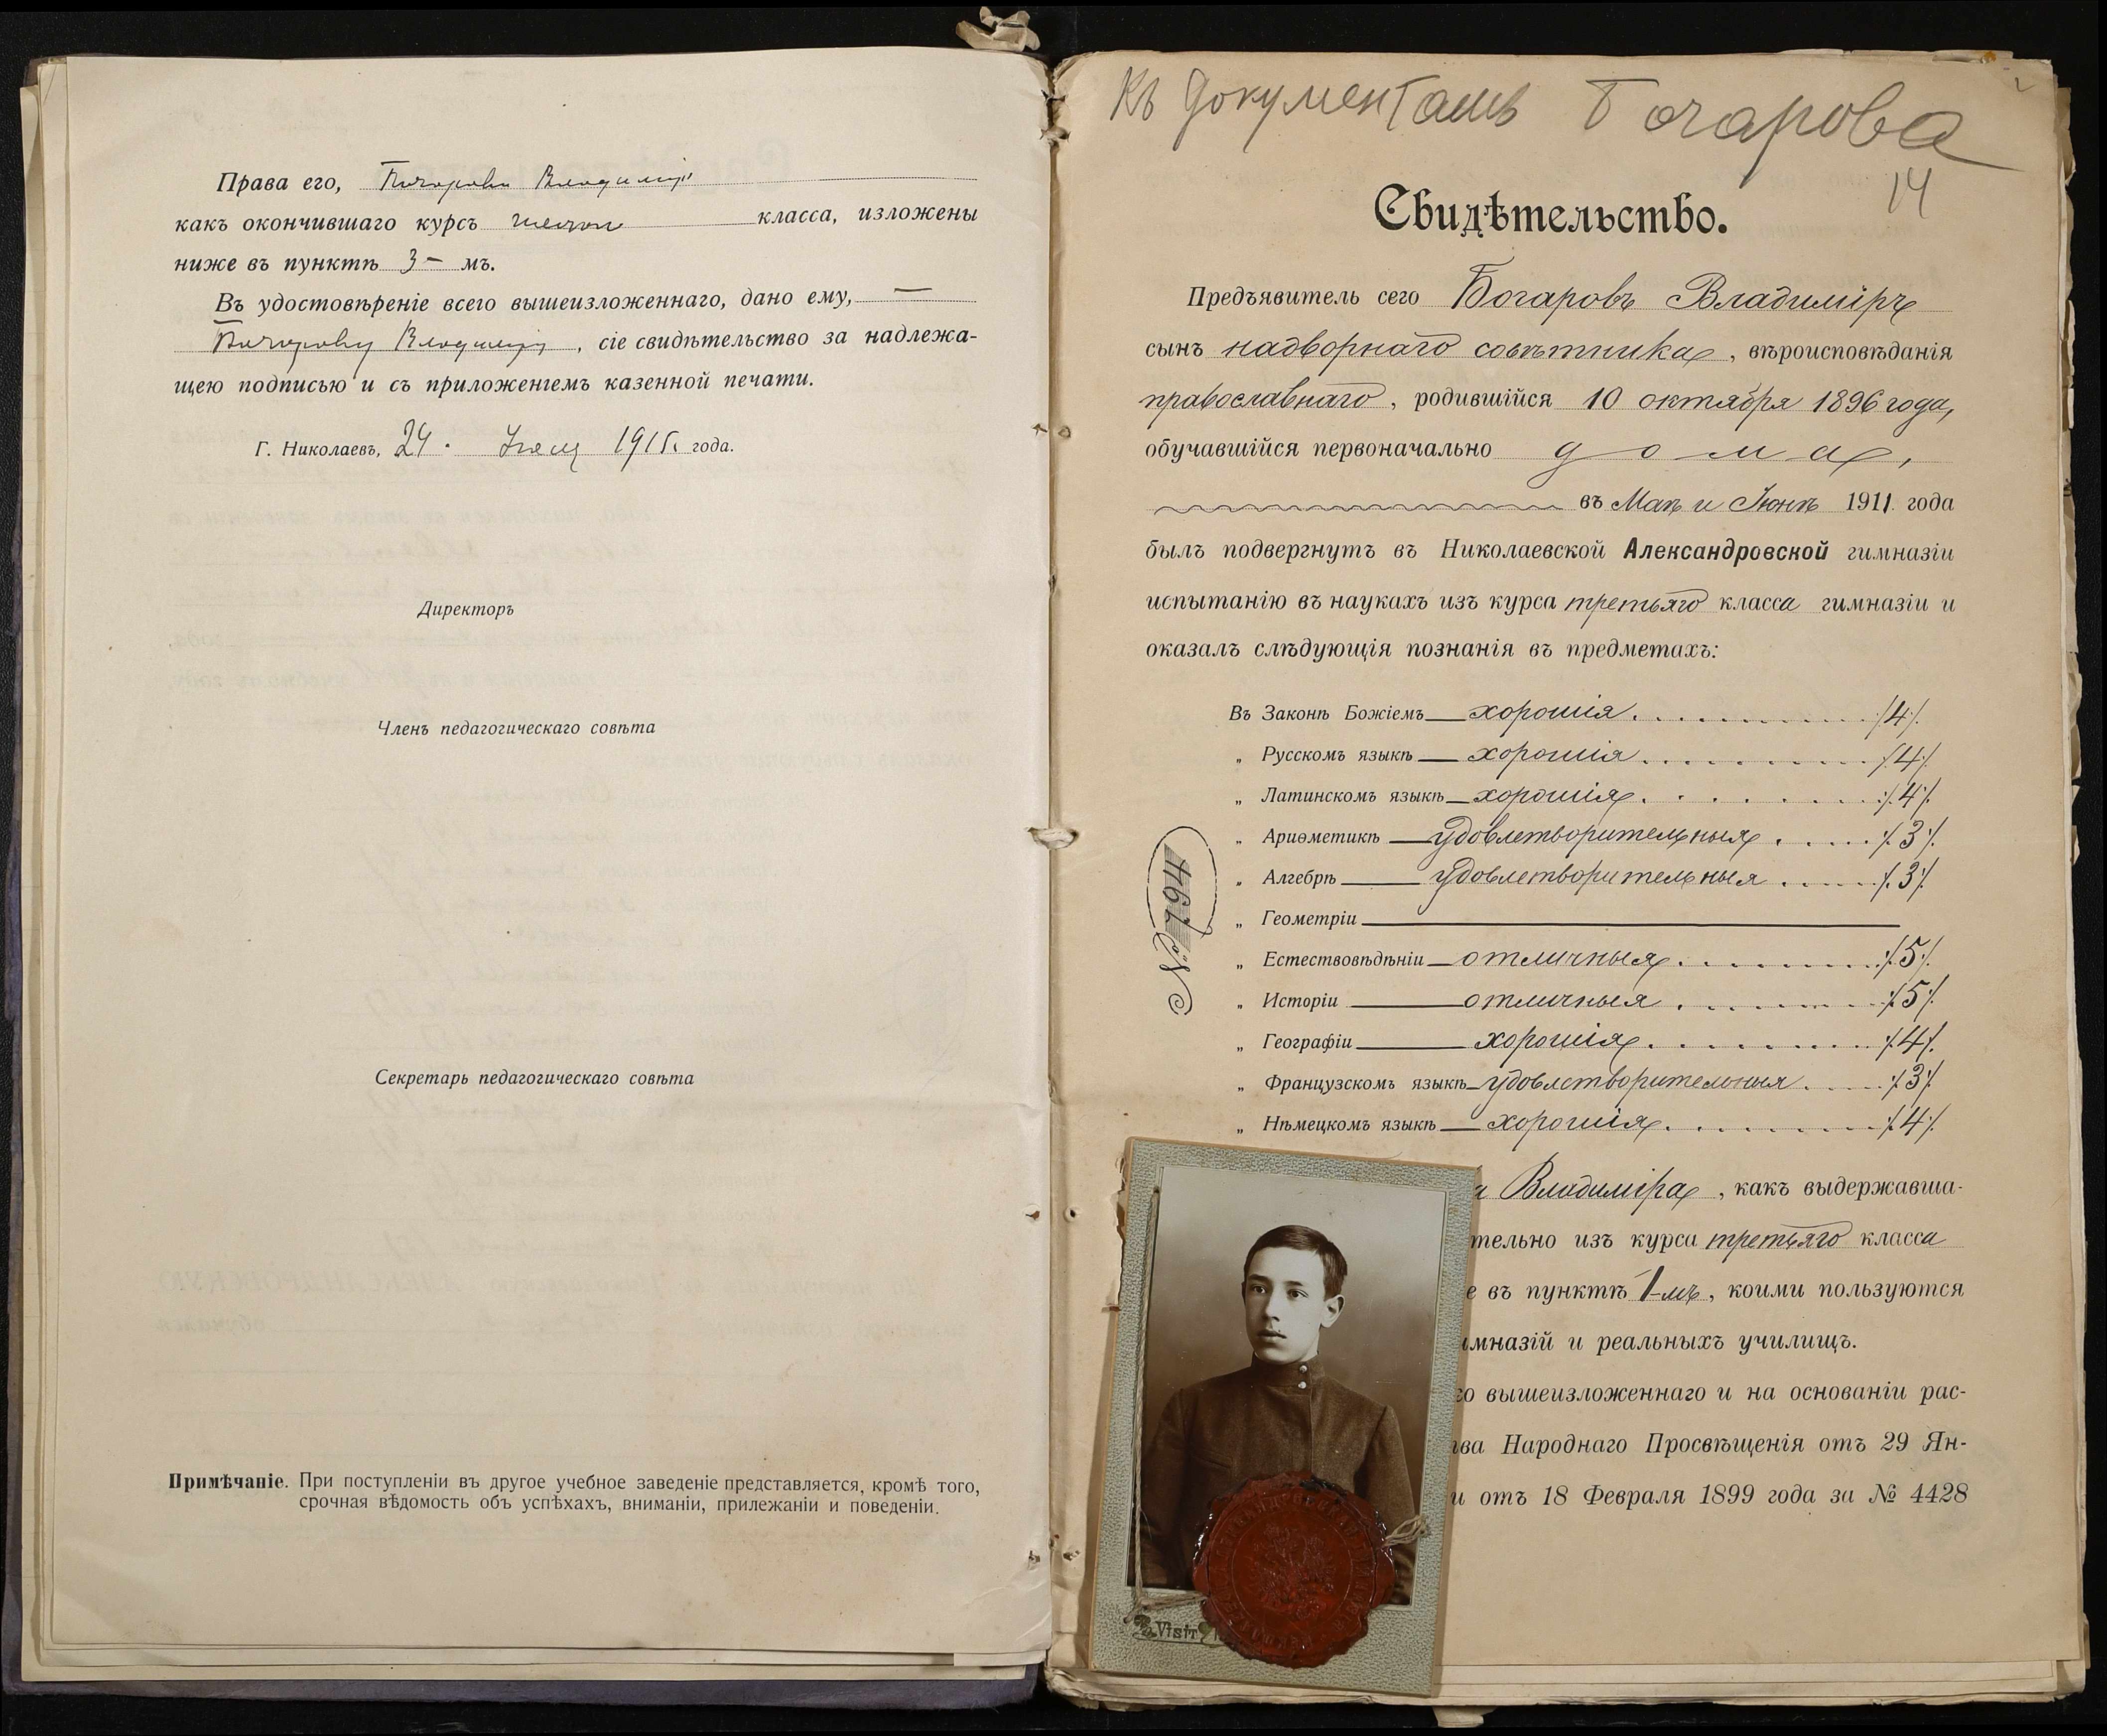 Права его, Бочарова Владиміра
какъ окончившаго курсъ шести класса, изложены
ниже въ пунктѣ 3 – мъ.
Въ удостовѣреніе всего вышеизложеннаго, дано ему, —
Бочарову Владиміру, сіе свидѣтельство за надлежа-
щею подписью и съ приложеніемъ казенной печати.
Г. Николаевъ, 24 · 1915. года.
Директоръ
Членъ педагогическаго совѣта
Секретарь педагогическаго совѣта
Примѣчаніе. При поступленіи въ другое учебное заведеніе представляется, кромѣ того,
срочная вѣдомость объ успѣхахъ, вниманіи, прилежаніи и поведеніи.
Къ документамъ Бочарова
14
Свидѣтельство.
Предъявитель сего Бочаровъ Владиміръ
сынъ надворнаго совѣтника, вѣроисповѣданія
православнаго, родившійся 10 октября 1896 года,
обучавшійся первоначально дома,
въ Маѣ и Іюнѣ 1911. года
былъ подвергнутъ въ Николаевской Александровской гимназіи
испытанію въ наукахъ изъ курса третьяго класса гимназіи и
оказалъ слѣдующія познанія въ предметахъ:
Въ Законѣ Божіемъ — хорошія . . . . . . . . . . ./4/.
„ Русскомъ языкѣ — хорошія . . . . . . . . . . ./4/.
„ Латинскомъ языкѣ — хорошія . . . . . . . . . ./4/.
„ Ариѳметикѣ — удовлетворительныя . . . . ./3/.
„ Алгебрѣ — удовлетворительныя . . . . ./3/.
„ Геометріи —
„ Естествовѣдѣніи — отличныя . . . . . . . . . ./5/.
„ Исторіи — отличныя . . . . . . . . . ./5/.
„ Географіи — хорошія . . . . . . . . . ./4/.
„ Французскомъ языкѣ — удовлетворительныя . . . . ./3/.
„ Нѣмецкомъ языкѣ — хорошія . . . . . . . . . ./4/.
№ 794
Владиміра, какъ выдержавша-
тельно изъ курса третьяго класса
е въ пунктѣ 1-мъ, коими пользуются
имназій и реальныхъ училищъ.
го вышеизложеннаго и на основаніи рас-
ва Народнаго Просвѣщенія отъ 29 Ян-
и отъ 18 Февраля 1899 года за № 4428
Visit